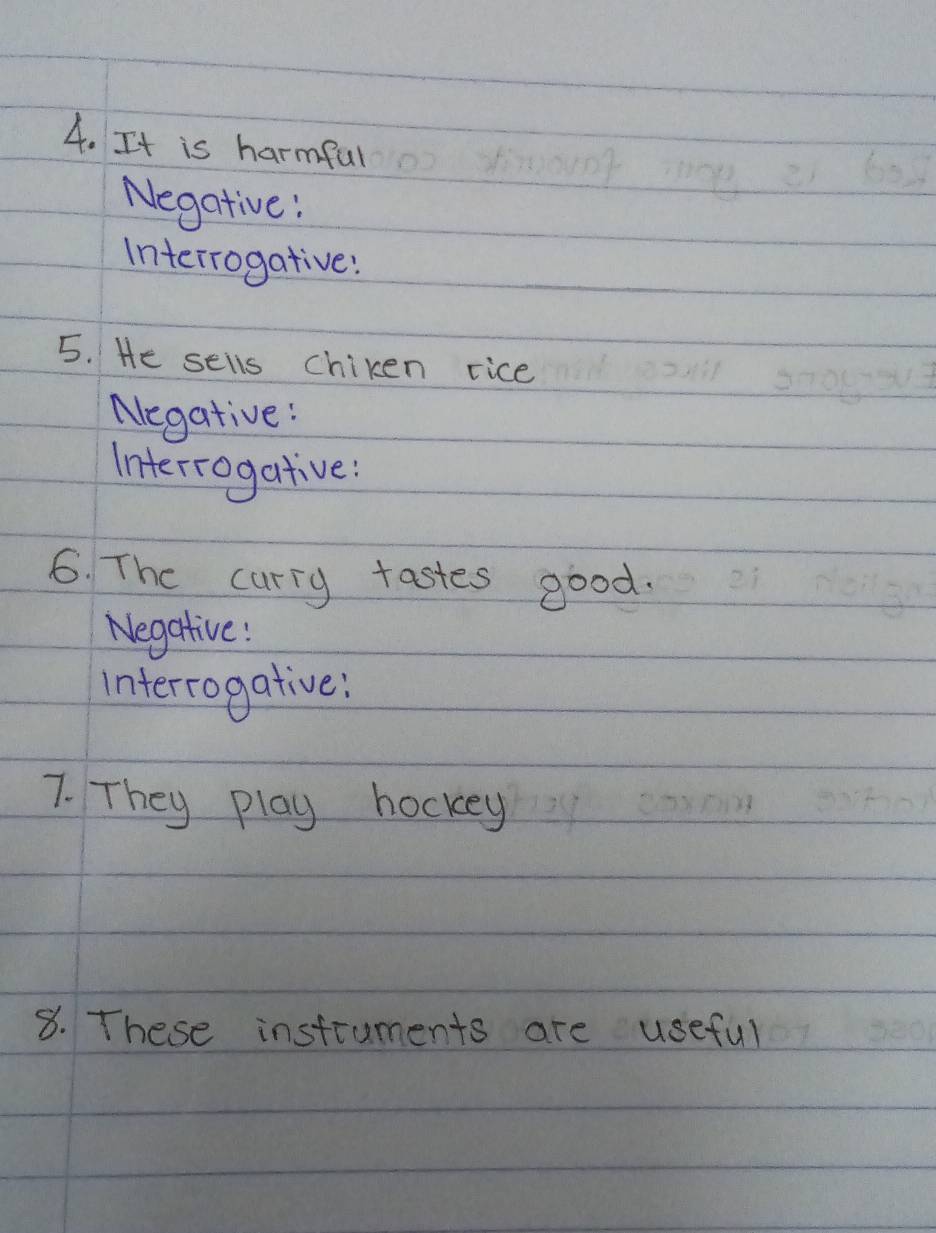 4. It is harmful
Negative:
Interrogative:
5. He sells chiken rice
Negative:
Interrogative:
6. The curry tastes good.
Negative:
Interrogative:
7. They play hockey
8. These instruments are useful